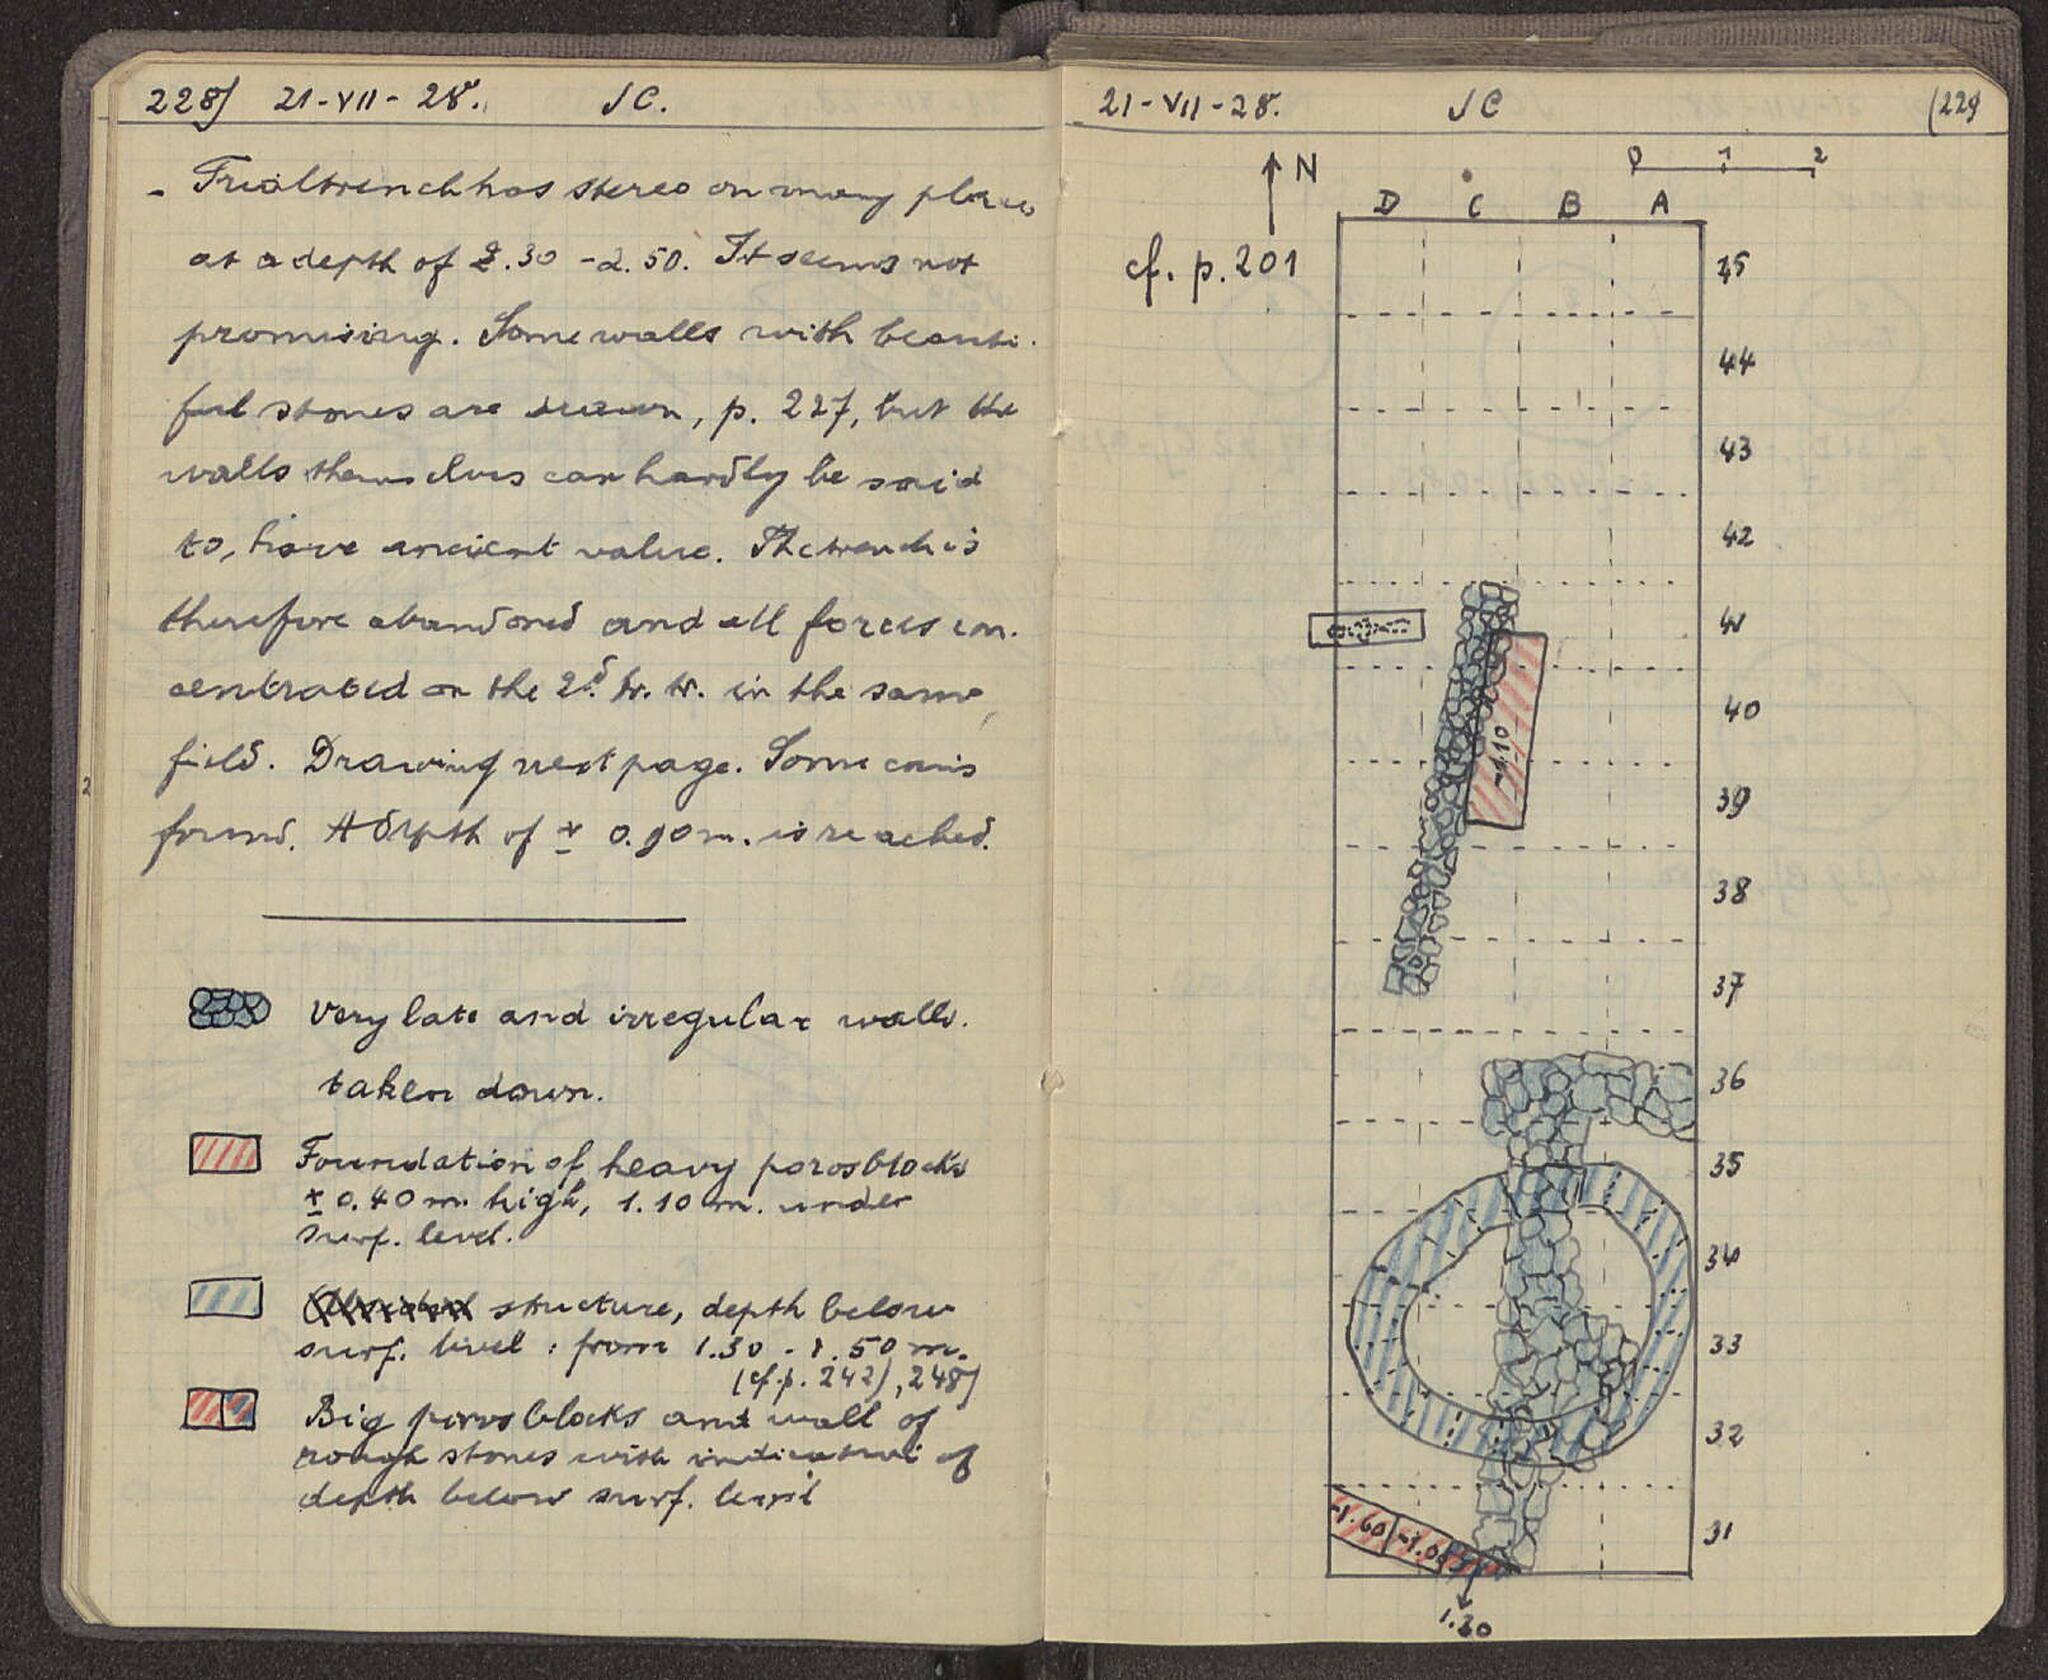 228) 21-VII-28. JC.
- Trialtrench has stereo on many places
at a depth of 2.30 - 2.50. It seems not
promising. Some walls with beauti-
ful stones are drawn, p. 227, but the
walls themselves can hardly be said
to, have ancient value. The trench is
therefore abandoned and all forces con-
centrated on the 2d. tr. tr. in the same
field. Drawing next page. Some coins
found. A depth of ± 0.90 m. is reached.
Very late and irregular walls.
taken down.
Foundation of heavy poros blocks
± 0.40 m. high, 1.10 m. under
surf. level.
structure, depth below
surf. level : from 1.30 - 1.50 m.
(cf. p. 242), 248)
Big poros blocks and wall of
rough stones with indication of
depth below surf. level
21-VII-28. JC (229
N
0 1 2
D C B A
cf. p. 201
45
44
43
42
41
40
-1.10
39
38
37
36
35
34
33
32
31
-1.60
1.30